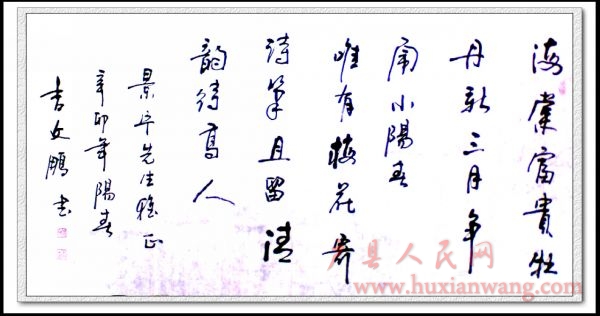 海棠富貴牡
丹新三月争
鬧小陽春
唯有梅花寄
詩筆且留清
韻待高人
景平先生雅正
辛卯年陽春
文鵬書
户县人民网
www.huxianwang.com